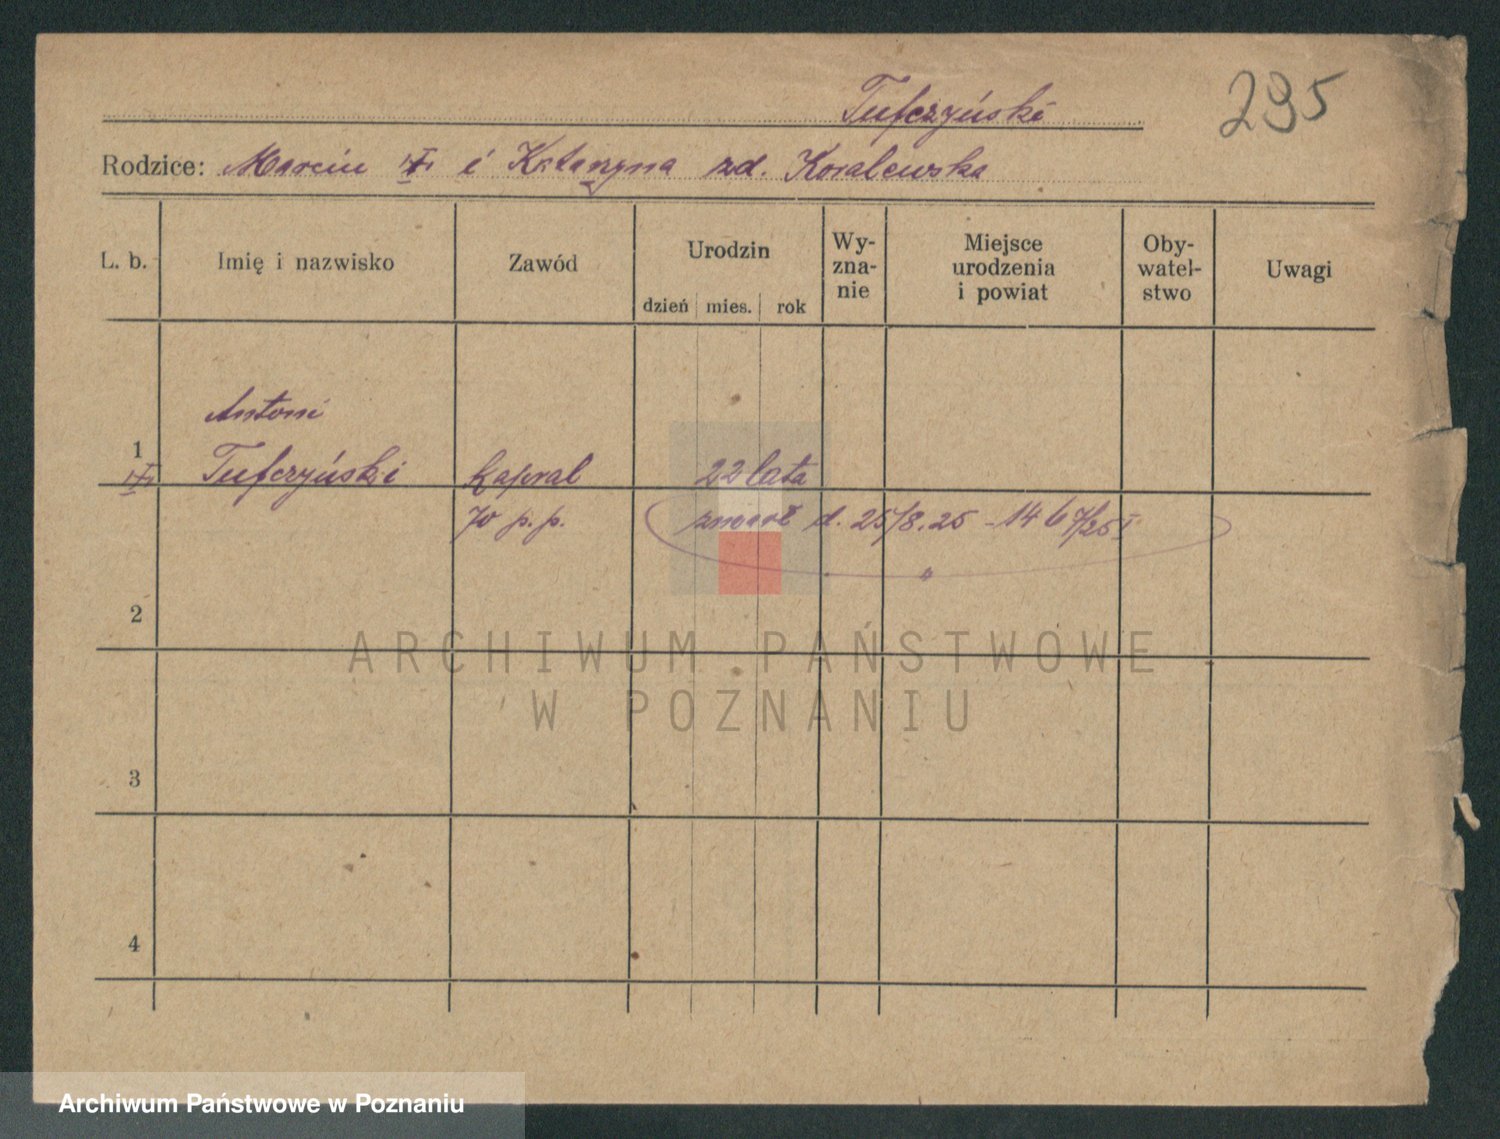 Tufczyński
295
Rodzice: Marcin i Katarzyna zd. Kowalewska
L. b. Imię i nazwisko Zawód Urodzin dzień mies. rok Wy-zna-nie Miejsce urodzenia i powiat Oby-watel-stwo Uwagi
Antoni
1 Tufczyński Kapral 22 lata
70 p.p. zmarł d. 25/8.25 - 146
2
ARCHIWUM PAŃSTWOWE
W POZNANIU
3
4
Archiwum Państwowe w Poznaniu